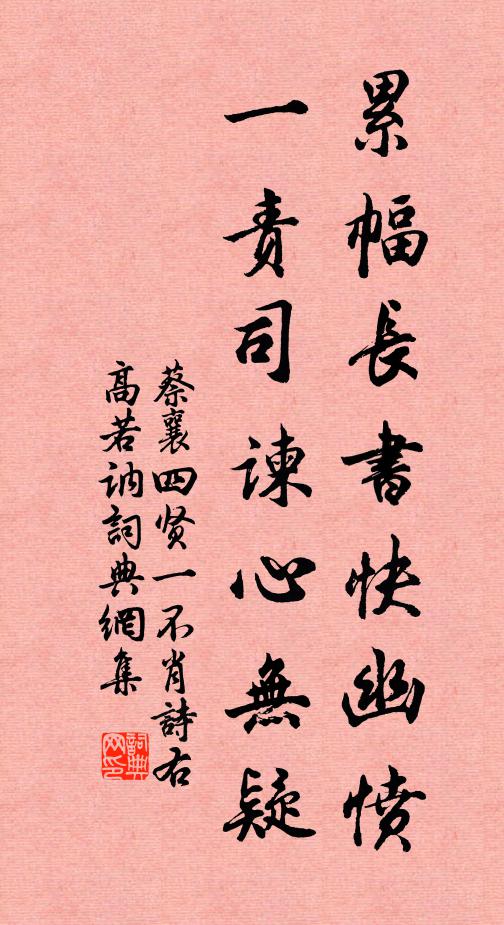 累幅長書快幽憤
一責司諫心無疑
蔡襄四贤一不肖詩右
高若訥詞典網集
詞典网印